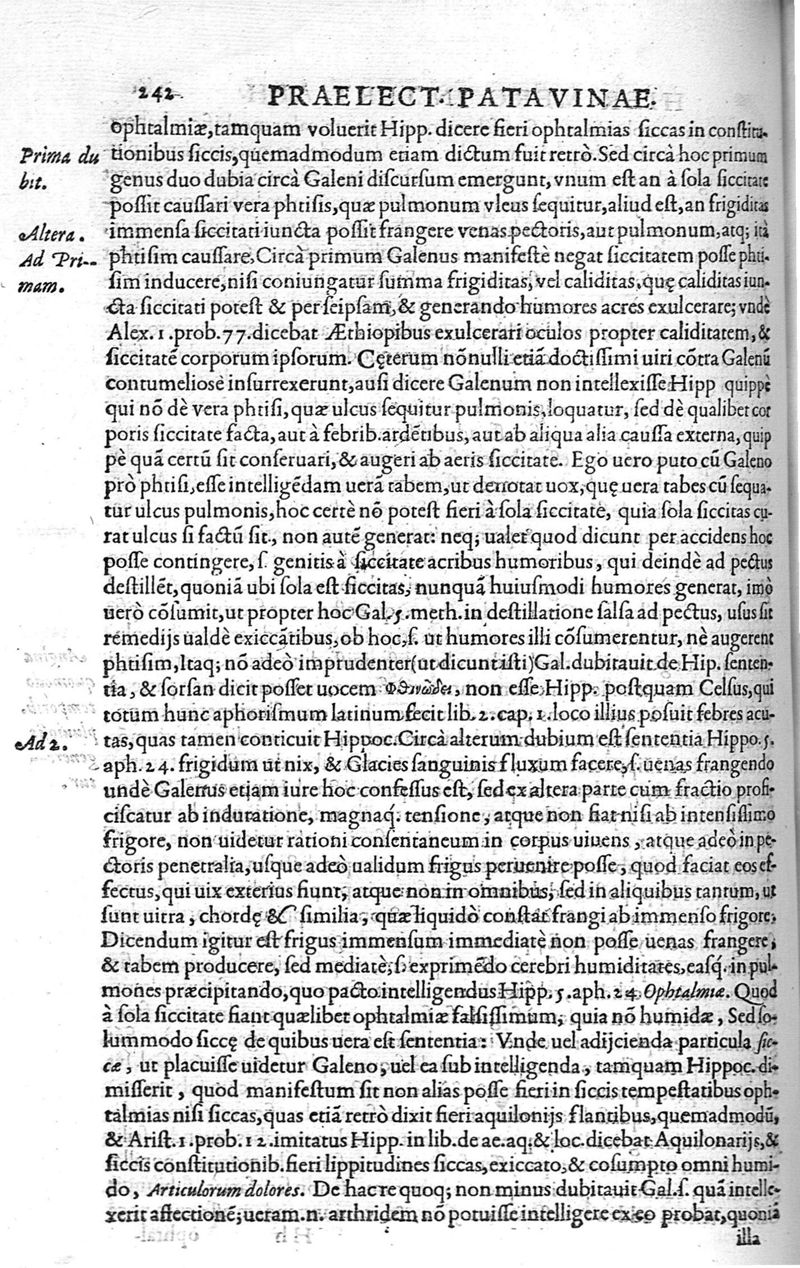 242 PRAELECT. PATAVINAE.
ophtalmiæ, tamquam voluerit Hipp. dicere fieri ophtalmias siccas in constitu-
Prima du
bit.
tionibus siccis, quemadmodum etiam dictum fuit retrò. Sed circà hoc primum
genus duo dubia circà Galeni discursum emergunt, vnum est an à sola siccitate
possit caussari vera phtisis, quæ pulmonum vlcus sequitur, aliud est, an frigiditas
Altera.
immensa siccitati iuncta possit frangere venas pectoris, aut pulmonum, atq; ità
Ad Pri-
mam.
phtisim caussare. Circà primum Galenus manifestè negat siccitatem posse phti-
sim inducere, nisi coniungatur summa frigiditas, vel caliditas, quę caliditas iun-
cta siccitati potest & per seipsam, & generando humores acres exulcerare; vndè
Alex. 1. prob. 77. dicebat Æthiopibus exulcerari oculos propter caliditatem, &
siccitatē corporum ipsorum. Cęterum nōnulli etiā doctissimi uiri cōtra Galenū
contumeliosè insurrexerunt, ausi dicere Galenum non intellexisse Hipp quippè
qui nō dè vera phtisi, quæ ulcus sequitur pulmonis, loquatur, sed dè qualibet cor
poris siccitate facta, aut à febrib. ardētibus, aut ab aliqua alia caussa externa, quip
pè quā certū sit conseruari, & augeri ab aeris siccitate. Ego uero puto cū Galeno
prò phtisi, esse intelligēdam uerā tabem, ut denotat uox, quę uera tabes cū sequa-
tur ulcus pulmonis, hoc certè nō potest fieri à sola siccitate, quia sola siccitas cu-
rat ulcus si factū sit, non autē generat: neq; ualet quod dicunt per accidens hoc
posse contingere, s. genitis à siccitate acribus humoribus, qui deindè ad pectus
destillēt, quoniā ubi sola est siccitas, nunquā huiusmodi humores generat, imò
uerò cōsumit, ut propter hoc Gal. 5. meth. in destillatione salsa ad pectus, usus sit
remedijs ualdè exiccātibus, ob hoc, s. ut humores illi cōsumerentur, nè augerent
phtisim, Itaq; nō adeò imprudenter (ut dicunt isti) Gal. dubitauit de Hip. senten-
tia, & forsan dicit posset uocem Φθινώδεις, non esse Hipp. postquam Celsus, qui
totum hunc aphorismum latinum fecit lib. 2. cap. 1. loco illius posuit febres acu-
Ad 2.
tas, quas tamen conticuit Hippoc. Circà alterum dubium est sententia Hippo. 5.
aph. 24. frigidum ut nix, & Glacies sanguinis fluxum facere, s. uenas frangendo
undè Galenus etiam iure hoc confessus est, sed ex altera parte cum fractio profi-
ciscatur ab induratione, magnaq́. tensione, atque non fiat nisi ab intensissimo
frigore, non uidetur rationi consentaneum in corpus uiuens, atque adeò in pe-
ctoris penetralia, usque adeò ualidum frigus peruenire posse, quod faciat eos ef-
fectus, qui uix exterius fiunt, atque non in omnibus, sed in aliquibus tantum, ut
sunt uitra, chordę & similia, quæ liquidò constat frangi ab immenso frigore.
Dicendum igitur est frigus immensum immediatè non posse uenas frangere,
& tabem producere, sed mediatè; s. exprimēdo cerebri humiditates, easq́. in pul-
mones præcipitando, quo pacto intelligendus Hipp. 5. aph. 24. Ophtalmiæ. Quod
à sola siccitate fiant quælibet ophtalmiæ falsissimum, quia nō humidæ, Sed so-
lummodo siccę de quibus uera est sententia: Vnde uel adijcienda particula sic-
cæ, ut placuisse uidetur Galeno, uel ea sub intelligenda, tamquam Hippoc. di-
miserit, quod manifestum sit non alias posse fieri in siccis tempestatibus oph-
talmias nisi siccas, quas etiā retrò dixit fieri aquilonijs flantibus, quemadmodū,
& Arist. 1. prob. 12. imitatus Hipp. in lib. de ae. aq. & loc. dicebat Aquilonarijs, &
siccis constitutionib. fieri lippitudines siccas, exiccato, & cōsumpto omni humi-
do, Articulorum dolores. De hac re quoq; non minus dubitauit Gal. s. quā intelle-
xerit affectionē; ueram. n. arthridem nō potuisse intelligere ex eo probat, quoniā
illa